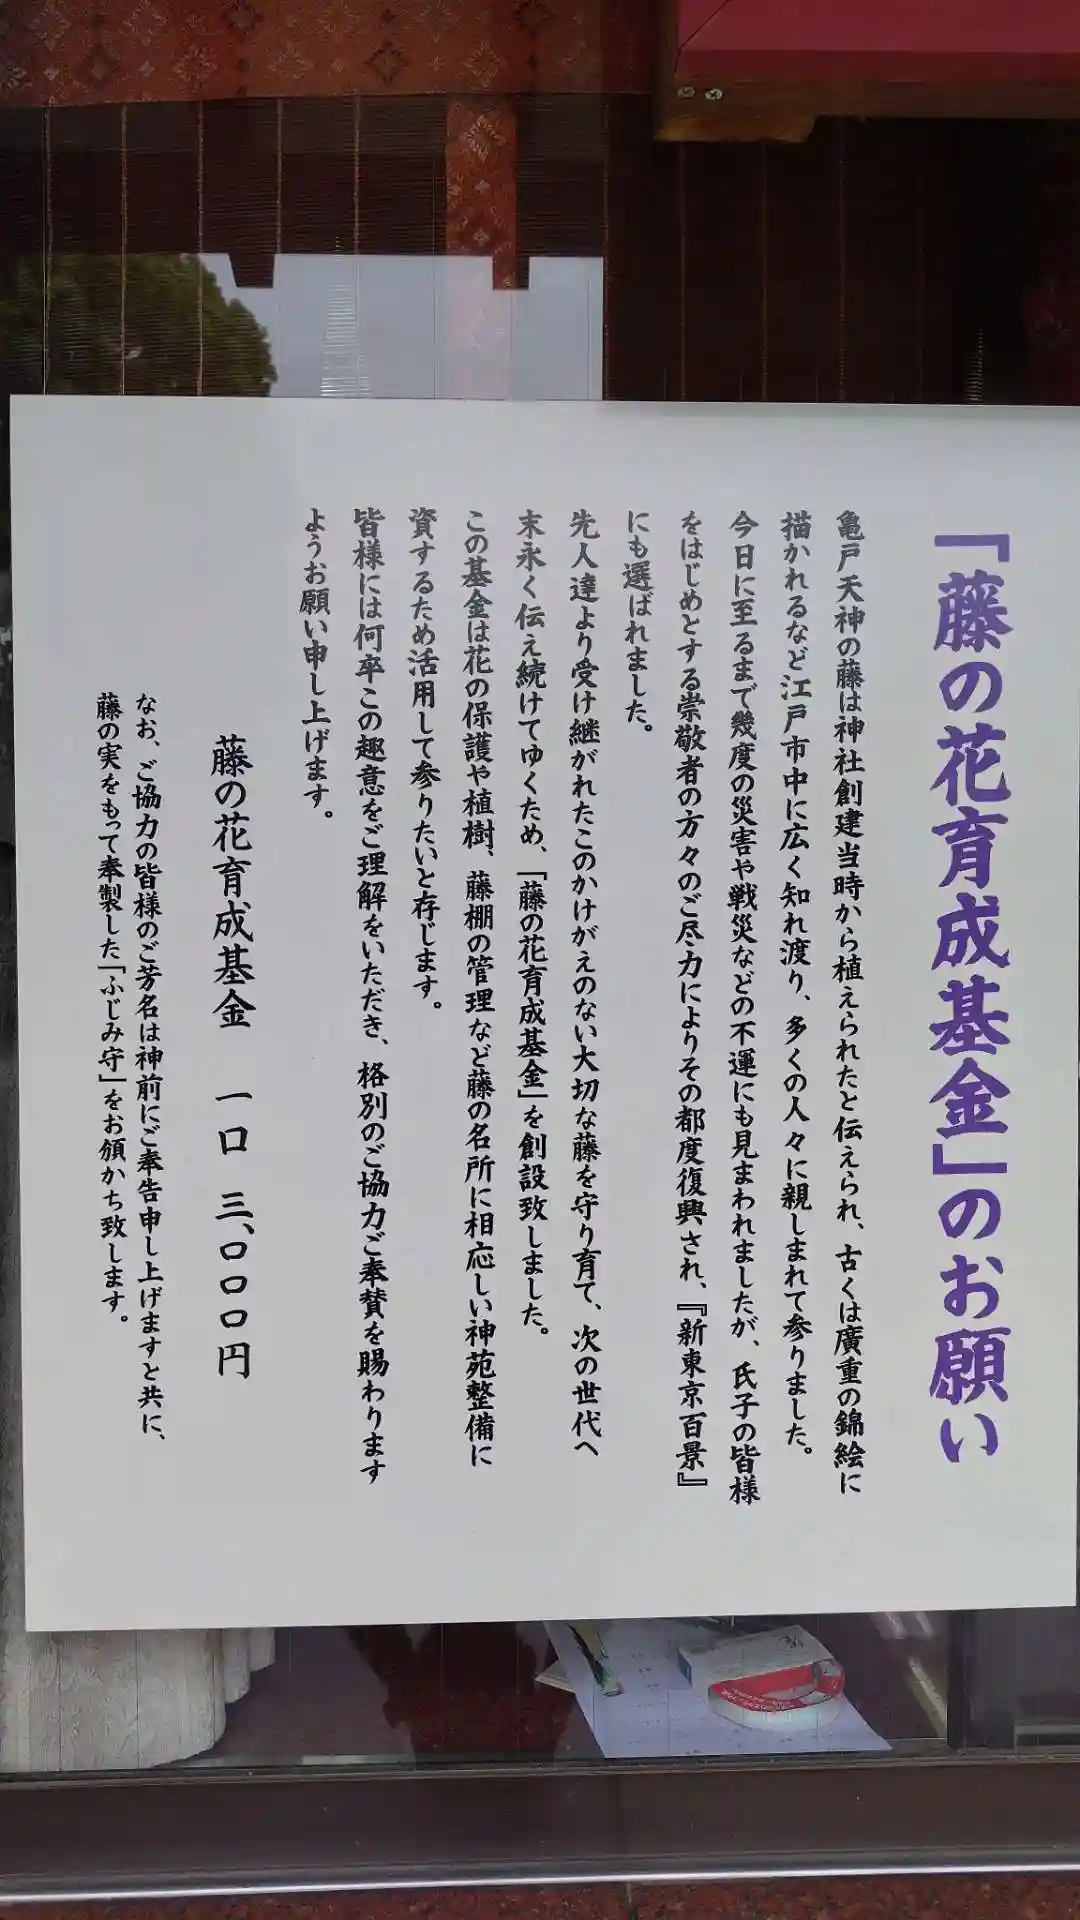 「藤の花育成基金」のお願い
亀戸天神の藤は神社創建当時から植えられたと伝えられ、古くは廣重の錦絵に
描かれるなど江戸市中に広く知れ渡り、多くの人々に親しまれて参りました。
今日に至るまで幾度の災害や戦災などの不運にも見まわれましたが、氏子の皆様
をはじめとする崇敬者の方々のご尽力によりその都度復興され、『新東京百景』
にも選ばれました。
先人達より受け継がれたこのかけがえのない大切な藤を守り育て、次の世代へ
末永く伝え続けてゆくため、「藤の花育成基金」を創設致しました。
この基金は花の保護や植樹、藤棚の管理など藤の名所に相応しい神苑整備に
資するため活用して参りたいと存じます。
皆様には何卒この趣意をご理解をいただき、格別のご協力ご奉賛を賜わります
ようお願い申し上げます。
藤の花育成基金 一口 三、〇〇〇円
なお、ご協力の皆様のご芳名は神前にご奉告申し上げますと共に、
藤の実をもって奉製した「ふじみ守」をお頒かち致します。